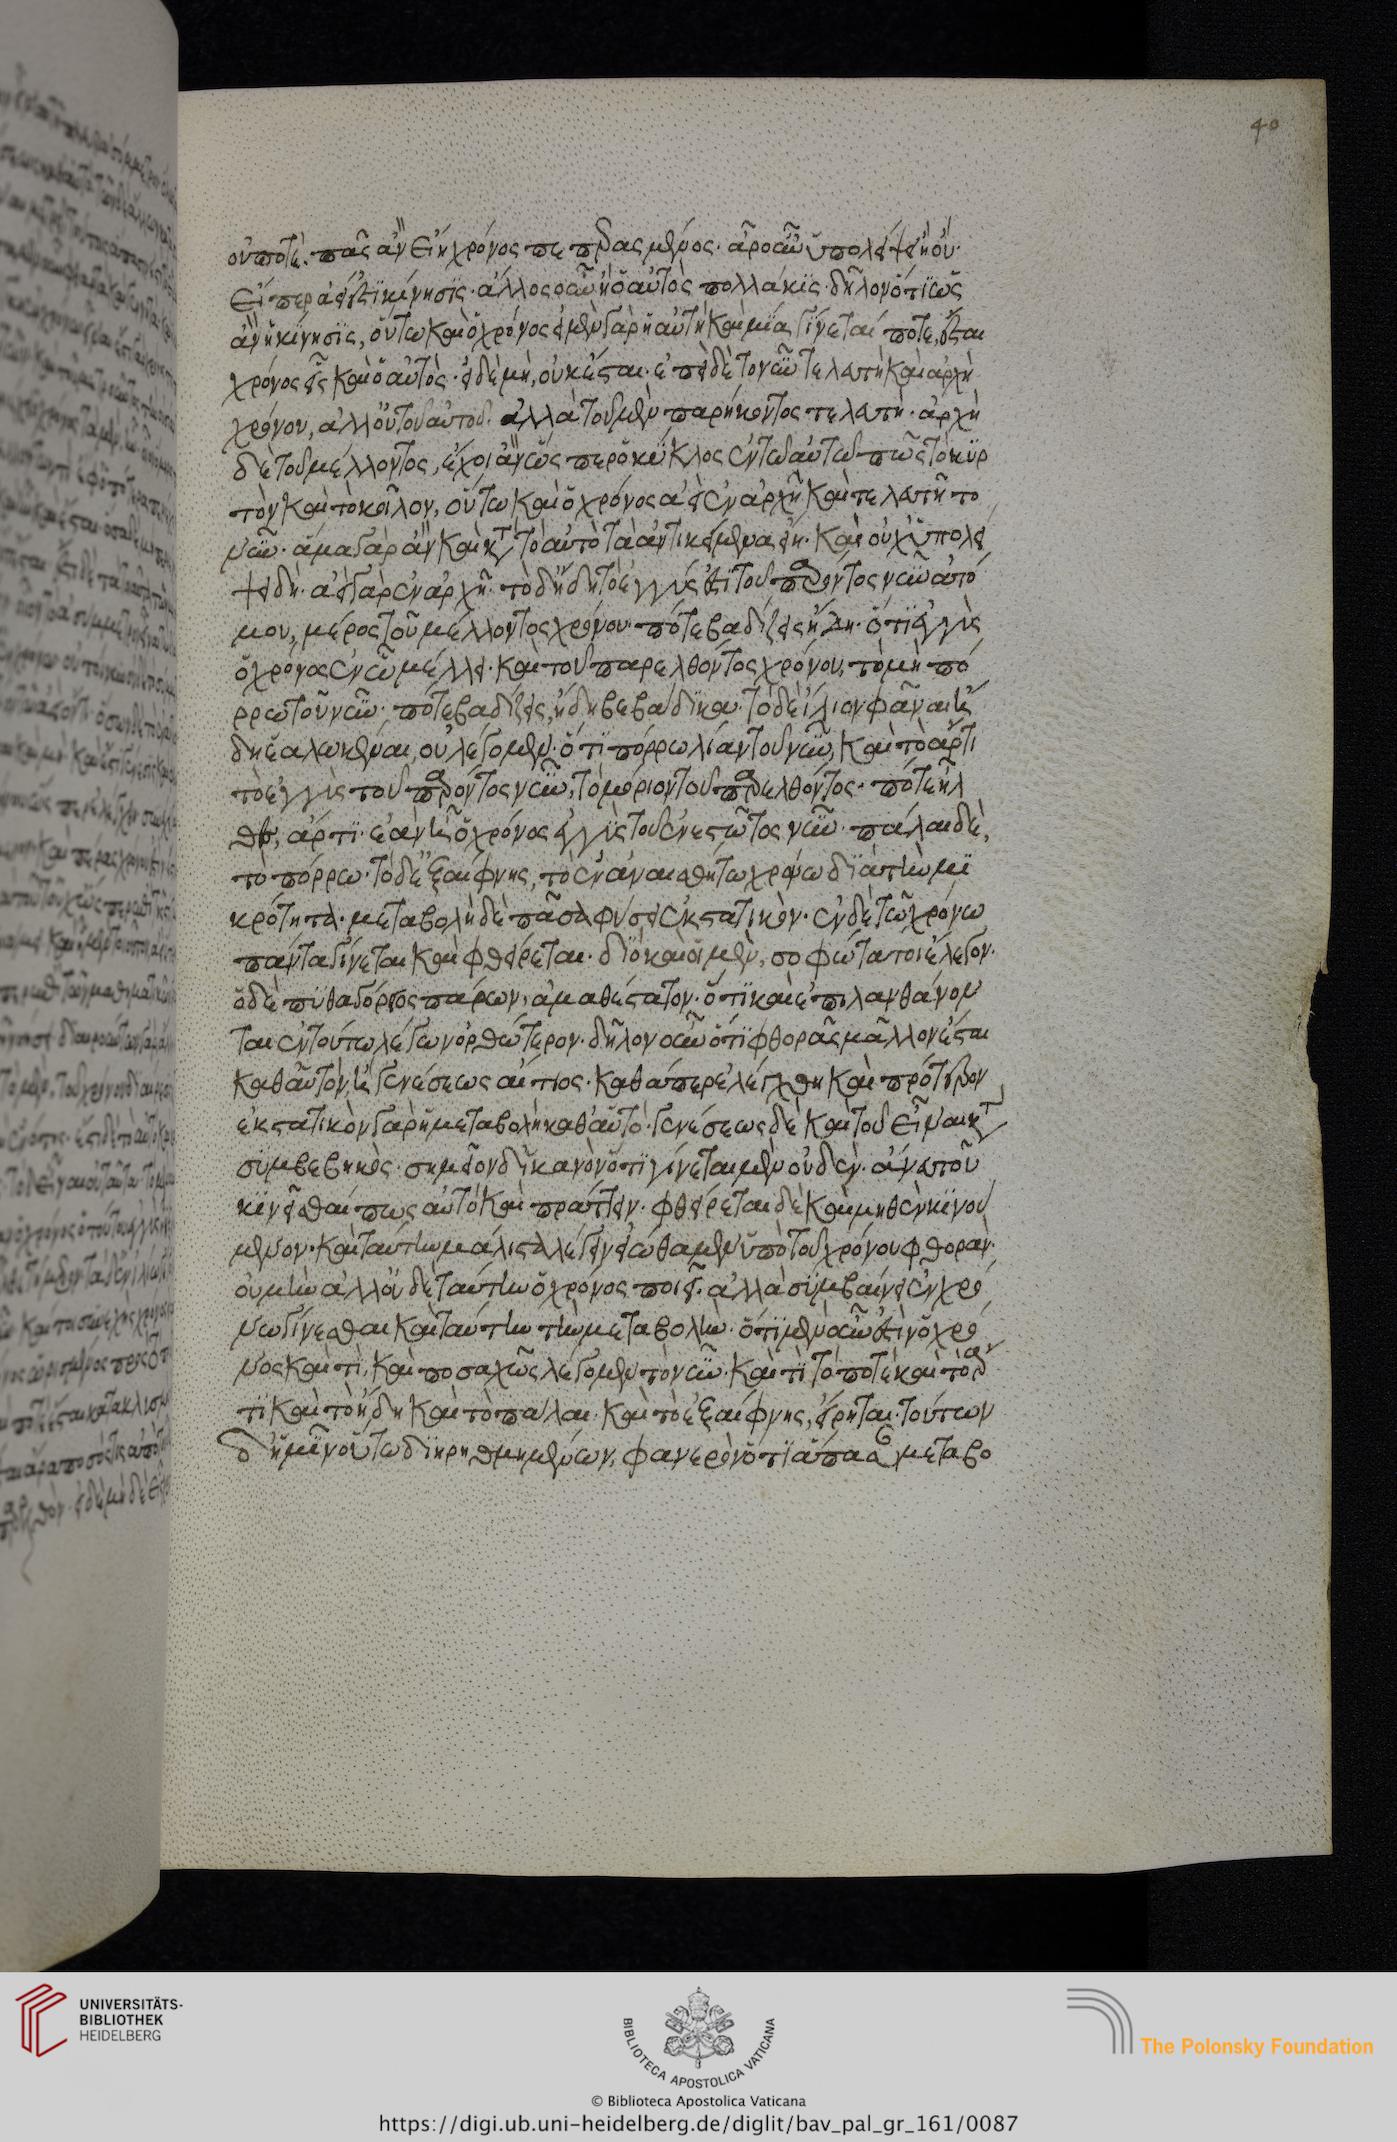 οὐ ποτὲ. πᾶς ἂν εἴη χρόνος πεπερασμένος. ἆρ οὖν ὑπολείψει ἢ οὔ.
εἴπερ ἀεὶ ἔστι κίνησις. ἄλλος οὖν ἢ ὁ αὐτὸς πολλάκις. δῆλον ὅτι ὡς
ἂν ἡ κίνησις, οὕτω καὶ ὁ χρόνος εἰ μὲν γὰρ ἡ αὐτὴ καὶ μία γίνεταί ποτε, ἔσται
χρόνος εἷς καὶ ὁ αὐτὸς. εἰ δὲ μὴ, οὐκ ἔσται. ἐπεὶ δὲ τὸ νῦν τελευτὴ καὶ ἀρχὴ
χρόνου, ἀλλ οὐ τοῦ αὐτοῦ. ἀλλὰ τοῦ μὲν παρήκοντος τελευτὴ. ἀρχὴ
δὲ τοῦ μέλλοντος, ἔχοι ἂν ὥσπερ ὁ κύκλος ἐν τῶ αὐτῶ πως τὸ κυρ
τὸν καὶ τὸ κοῖλον, οὕτω καὶ ὁ χρόνος ἀεὶ ἐν ἀρχῆ καὶ τελευτῆ το
νῦν. ἅμα γὰρ ἂν καὶ κτ τὸ αὐτὸ τὰ ἀντικείμενα εἴη. καὶ οὐχ ὑπολεί
ψει δὴ. ἀεὶ γὰρ ἐν ἀρχῆ. τὸ δ ἤδη τὸ ἐγγύς ἐστι τοῦ παρόντος νῦν ἀτό
μου, μέρος τοῦ μέλλοντος χρόνου. πότε βαδίζεις ἤδη. ὅτι ἐγγὺς
ὁ χρόνος ἐν ὧ μέλλει. καὶ τοῦ παρελθόντος χρόνου, τὸ μὴ πό
ρρω τοῦ νῦν. πότε βαδίζεις, ἤδη βεβάδικα. τὸ δὲ ἴλιον φάναι ἤ
δη ἑαλωκέναι, οὐ λέγομεν. ὅτι πόρρω λίαν τοῦ νῦν, καὶ τὸ ἄρτι
τὸ ἐγγὺς τοῦ παρόντος νῦν, τὸ μόριον τοῦ παρελθόντος. πότε ἦλ
θες, ἄρτι. ἐὰν ἦ ὁ χρόνος ἐγγὺς τοῦ ἐνεστῶτος νῦν. πάλαι δὲ,
τὸ πόρρω. τὸ δ ἐξαίφνης, τὸ ἐν ἀναισθήτω χρόνω διὰ τὴν μι
κρότητα. μεταβολὴ δὲ πᾶσα φύσει ἐκστατικὸν. ἐν δὲ τῶ χρόνω
πάντα γίνεται καὶ φθείρεται. διὸ καὶ οἱ μὲν, σοφώτατον ἔλεγον.
ὁ δὲ πυθαγόριος πάρων, ἀμαθέστατον. ὅτι καὶ ἐπιλανθάνον
ται ἐν τούτω λέγων ὀρθώτερον. δῆλον οὖν ὅτι φθορᾶς μᾶλλον ἔσται
καθ αὑτὸν, ἢ γενέσεως αἴτιος. καθάπερ ἐλέχθη καὶ πρότερον
ἐκστατικὸν γὰρ ἡ μεταβολὴ καθ αὑτὸ. γενέσεως δὲ καὶ τοῦ εἶναι κτ
συμβεβηκὸς. σημεῖον δ ἱκανὸν ὅτι γίνεται μὲν οὐδὲν. ἄνευ τοῦ
κινεῖσθαί πως αὐτὸ καὶ πράττειν. φθείρεται δὲ καὶ μηθὲν κινού
μενον. καὶ ταύτην μάλιστα λέγειν εἰώθαμεν ὑπὸ τοῦ χρόνου φθοραν.
οὐ μὴν ἀλλ οὐδὲ ταύτην ὁ χρόνος ποιεῖ. ἀλλὰ συμβαίνει ἐν χρό
νω γίνεσθαι καὶ ταύτην τὴν μεταβολὴν. ὅτι μὲν οὖν ἐστὶν ὁ χρό
νος καὶ τὶ, καὶ ποσαχῶς λέγομεν τὸ νῦν. καὶ τί τὸ ποτὲ καὶ τὸ ἄρ
τι καὶ τὸ ἤδη καὶ τὸ πάλαι. καὶ τὸ ἐξαίφνης, εἴρηται. τούτων
δ ἡμῖν οὕτω διῃρημένων, φανερὸν ὅτι ἅπασα μεταβο
40
UNIVERSITÄTS-
BIBLIOTHEK
HEIDELBERG
BIBLIOTECA APOSTOLICA VATICANA
The Polonsky Foundation
© Biblioteca Apostolica Vaticana
https://digi.ub.uni-heidelberg.de/diglit/bav_pal_gr_161/0087